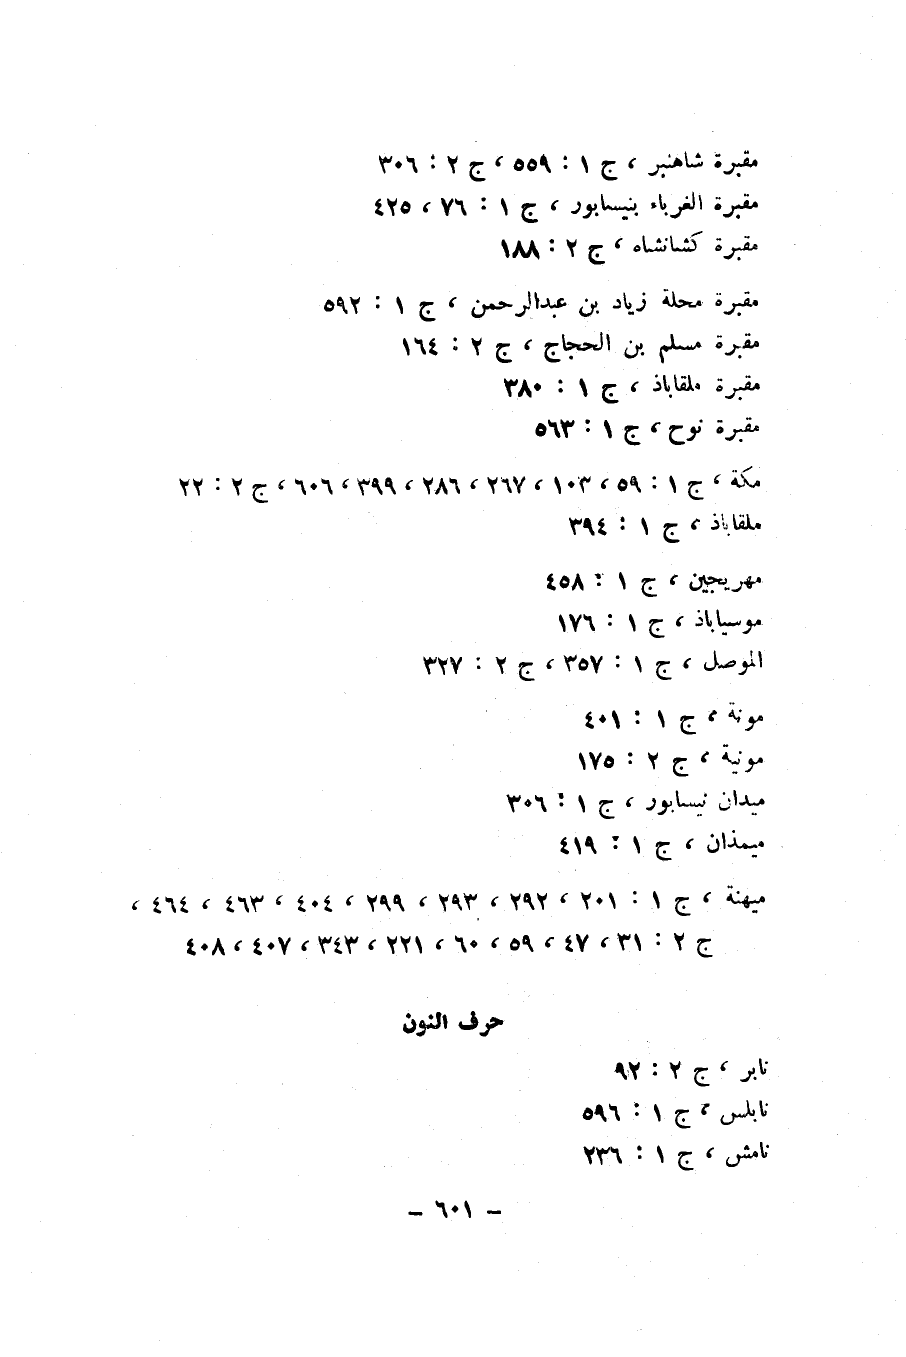 مقبرة شاهنبر ، ج ١ : ٥٥٩ ، ج ٢ : ٣٠٦
مقبرة الغرباء بنيسابور ، ج ١ : ٧٦ ، ٤٢٥
مقبرة كشانشاه ، ج ٢ : ١٨٨
مقبرة محلة زياد بن عبدالرحمن ، ج ١ : ٥٩٢
مقبرة مسلم بن الحجاج ، ج ٢ : ١٦٤
مقبرة ملقاباذ ، ج ١ : ٣٨٠
مقبرة نوح ، ج ١ : ٥٦٣
مكة ، ج ١ : ٥٩ ، ١٠٣ ، ٢٦٧ ، ٢٨٦ ، ٣٩٩ ، ٦٠٦ ، ج ٢ : ٢٢
ملقاباذ ، ج ١ : ٣٩٤
مهريجين ، ج ١ : ٤٥٨
موسياباذ ، ج ١ : ١٧٦
الموصل ، ج ١ : ٣٥٧ ، ج ٢ : ٣٢٧
مونة ، ج ١ : ٤٠١
مونية ، ج ٢ : ١٧٥
ميدان نيسابور ، ج ١ : ٣٠٦
ميمذان ، ج ١ : ٤١٩
ميهنة ، ج ١ : ٢٠١ ، ٢٩٢ ، ٢٩٣ ، ٢٩٩ ، ٤٠٤ ، ٤٦٣ ، ٤٦٤ ،
ج ٢ : ٣١ ، ٤٧ ، ٥٩ ، ٦٠ ، ٢٢١ ، ٣٤٣ ، ٤٠٧ ، ٤٠٨
حرف النون
نابر ، ج ٢ : ٩٢
نابلس ، ج ١ : ٥٩٦
نامش ، ج ١ : ٢٣٦
– ٦٠١ –